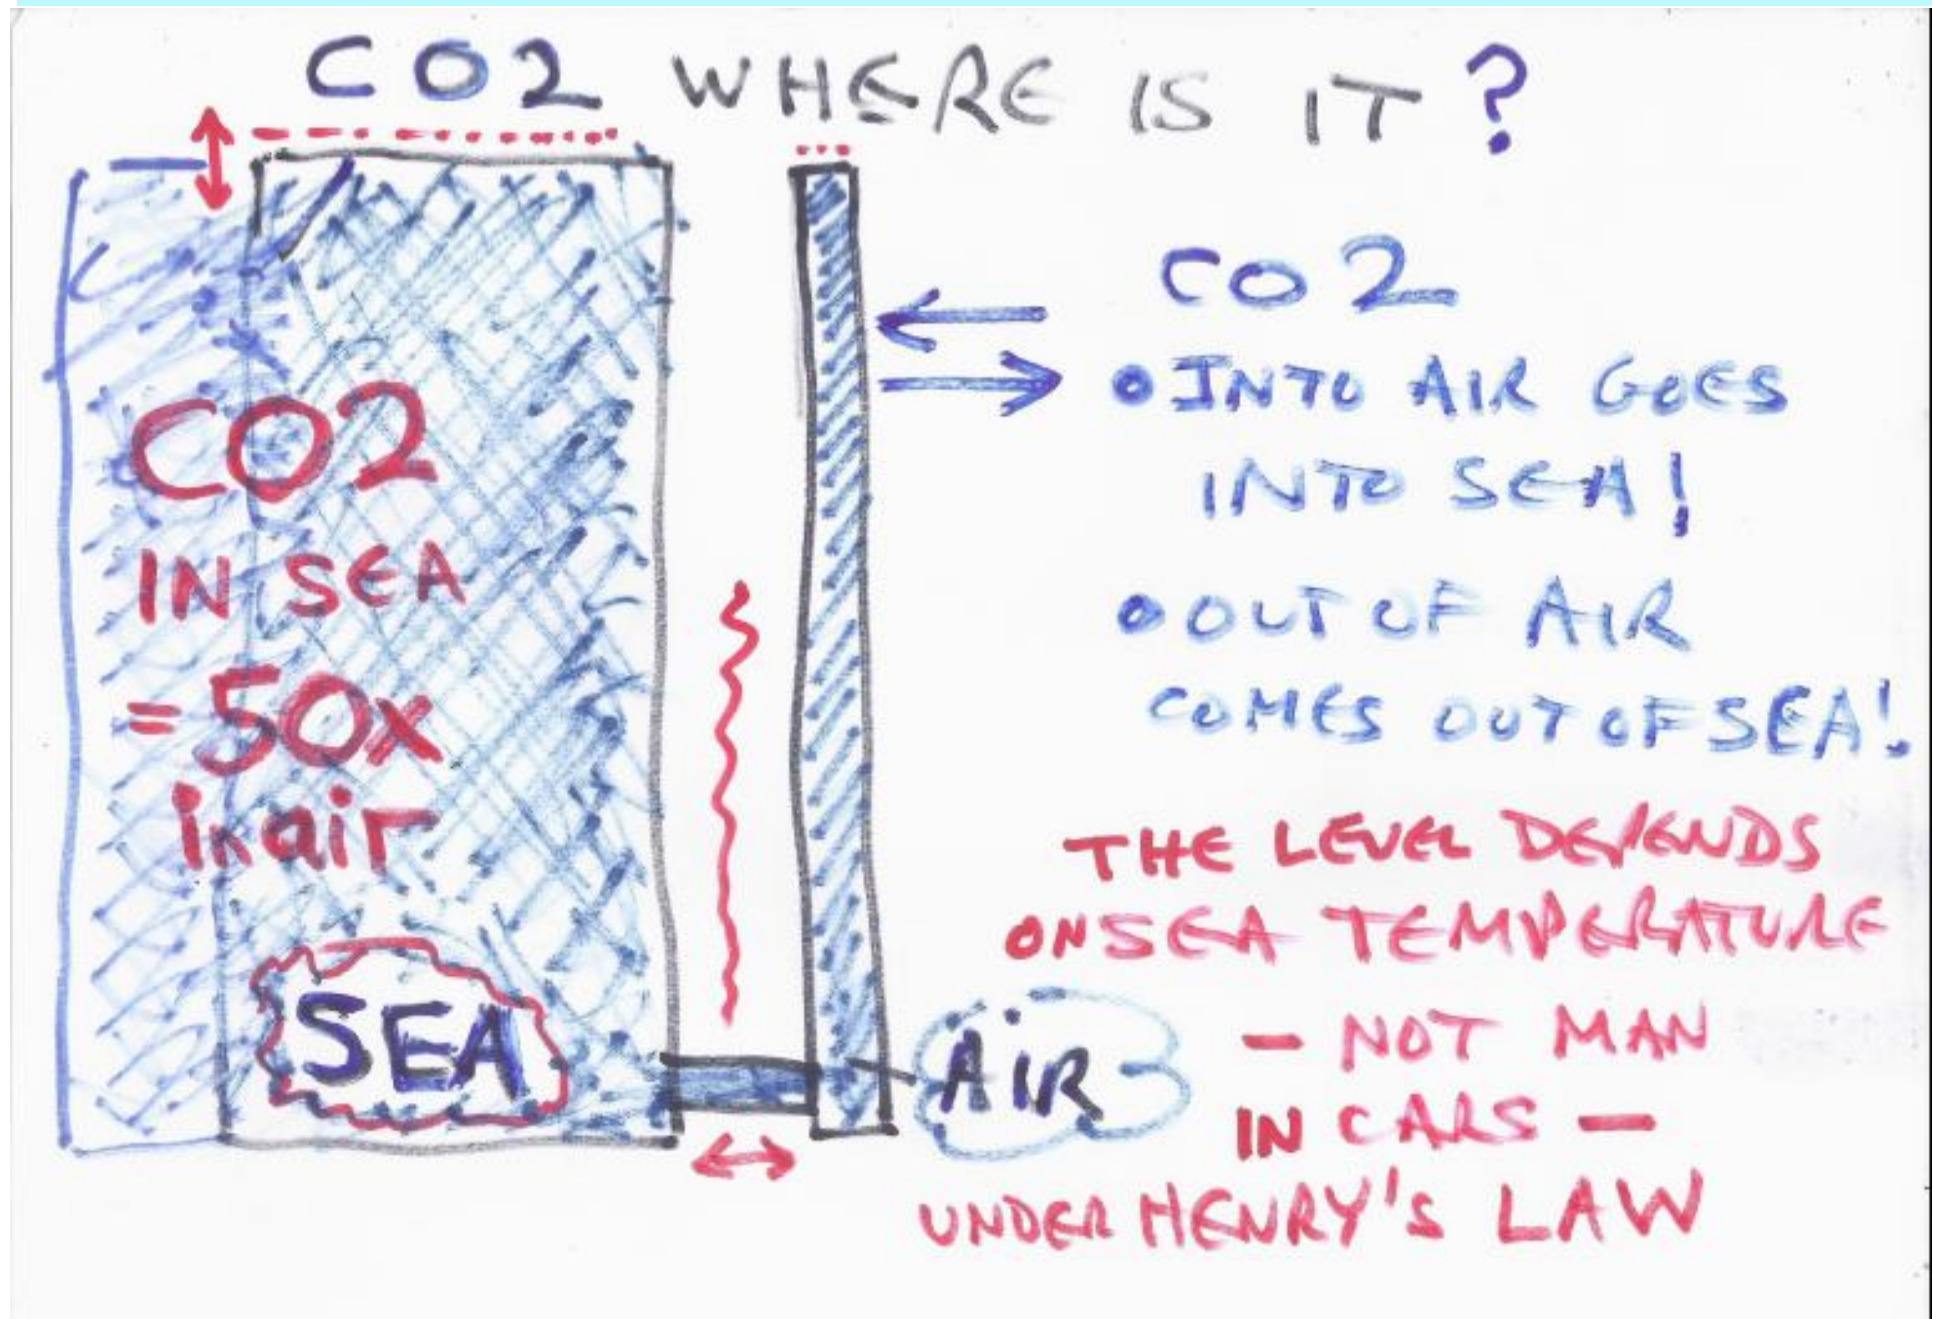 CO2 WHERE IS IT?
CO2
IN SEA
=50x
in air
SEA
CO2
• INTO AIR GOES
INTO SEA!
• OUT OF AIR
COMES OUT OF SEA!
THE LEVEL DEPENDS
ON SEA TEMPERATURE
- NOT MAN
IN CARS -
UNDER HENRY'S LAW
AIR